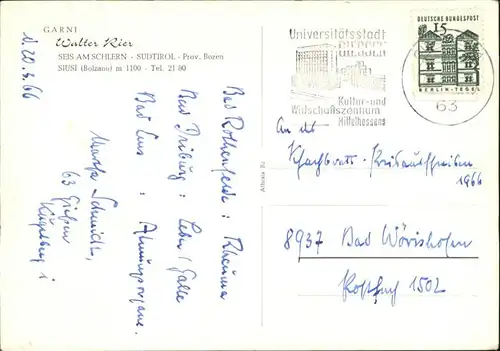 GARNI
Walter Rier
SEIS AM SCHLERN - SÜDTIROL - Prov. Bozen
SIUSI (Bolzano) m 1100 - Tel. 21 80
20.4.66
Bad Rothenfelde : Rheuma
Bad Driburg : Leber / Galle
Bad Ems : Atmungsorgane.
Martha Schmidt,
63 Gießen
Universitätsstadt
GIESSEN
Kultur- und
Wirtschaftszentrum
Mittelhessens
63
DEUTSCHE BUNDESPOST
15
BERLIN-TEGEL
An das
Preisausschreiben
1966
8937 Bad Wörishofen
Postfach 1502